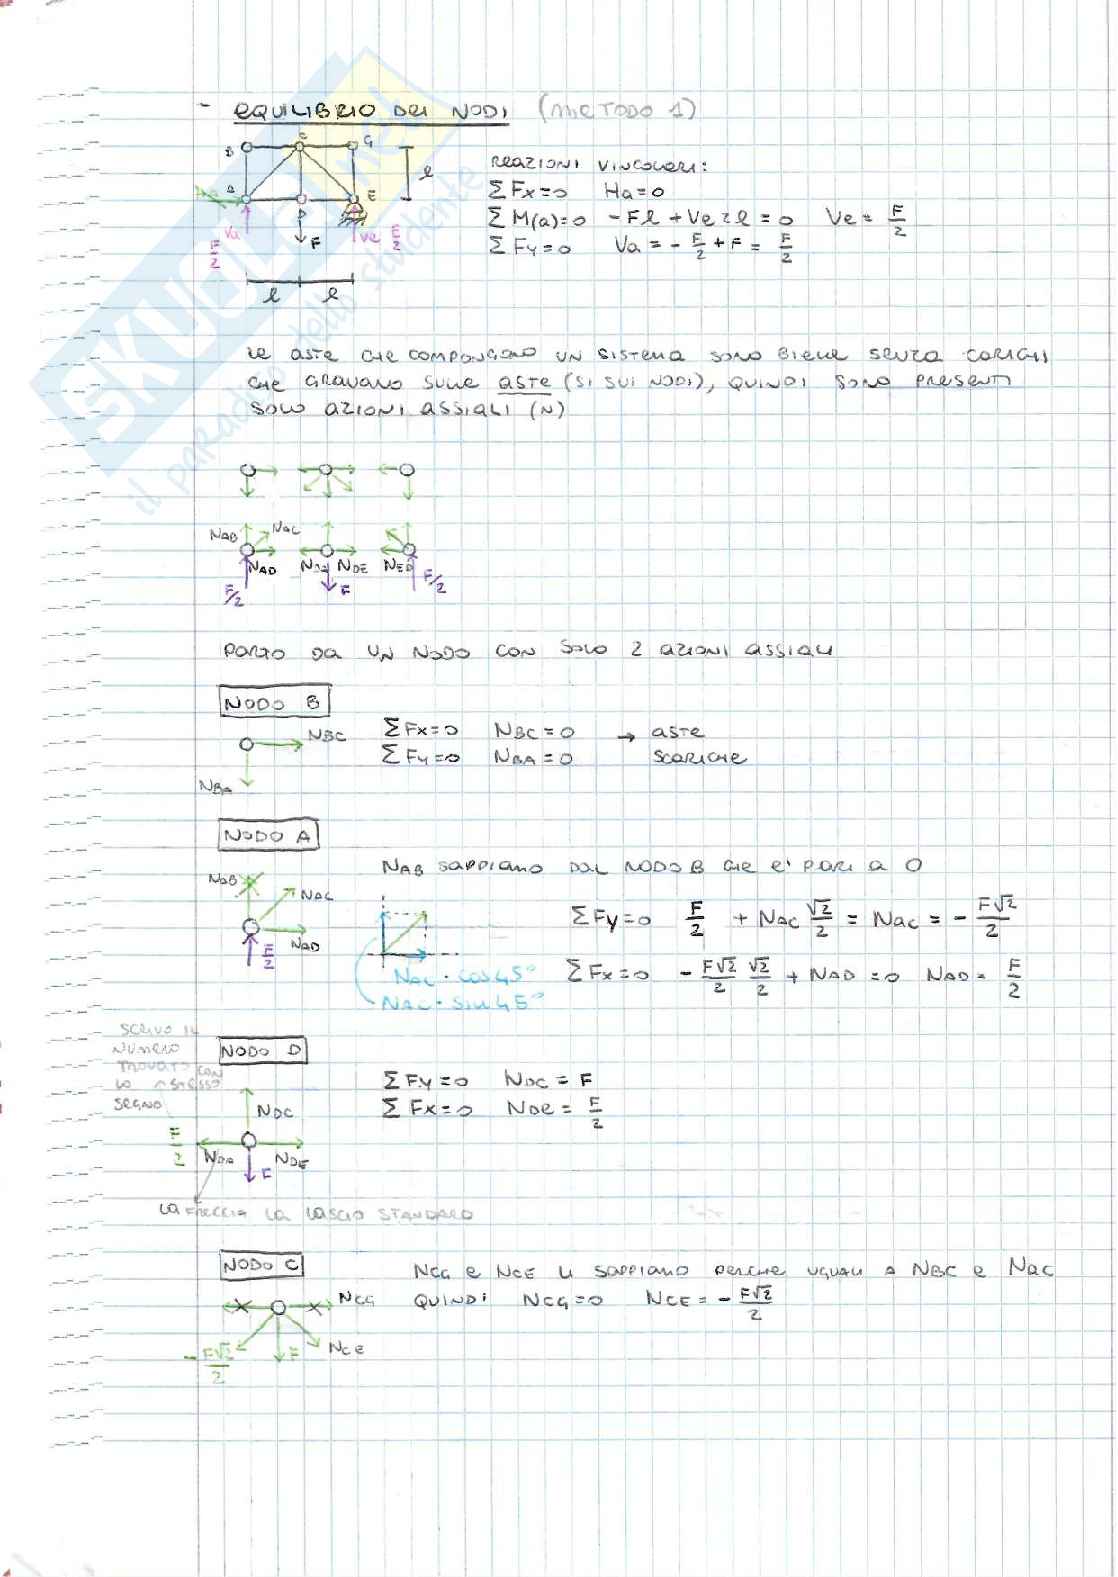 - EQUILIBRIO DEI NODI (METODO 1)
B C G
A D E
l
Ha
Va F Ve F/2
F/2
l l
REAZIONI VINCOLARI:
ΣFx=0 Ha=0
ΣM(a)=0 -Fl + Ve2l = 0 Ve = F/2
ΣFy=0 Va = - F/2 + F = F/2
LE ASTE CHE COMPONGONO UN SISTEMA SONO BIELLE SENZA CARICHI
CHE GRAVANO SULLE ASTE (SI SUI NODI), QUINDI SONO PRESENTI
SOLO AZIONI ASSIALI (N)
NAB NAC
NAD NDA NDE NED
F/2 F F/2
PARTO DA UN NODO CON SOLO 2 AZIONI ASSIALI
NODO B
NBC ΣFx=0 NBC = 0 → ASTE
ΣFy=0 NBA = 0 SCARICHE
NBA
NODO A
NAB SAPPIAMO DAL NODO B CHE E' PARI A 0
NAB NAC
NAD F/2
ΣFy=0 F/2 + NAC √2/2 = NAC = - F√2/2
NAC · COS45°
NAC · SIN45°
ΣFx=0 - F√2/2 √2/2 + NAD = 0 NAD = F/2
SCRIVO IL
NUMERO
TROVATO CON
LO STESSO
SEGNO
NODO D
ΣFy=0 NDC = F
ΣFx=0 NDE = F/2
NDC
F/2 NDA NDE
F
LA FRECCIA LA LASCIO STANDARD
NODO C
NCG E NCE LI SAPPIAMO PERCHE UGUALI A NBC E NAC
NCG QUINDI NCG=0 NCE = - F√2/2
- F√2/2 F NCE
SKUOLA.net
il paradiso dello studente